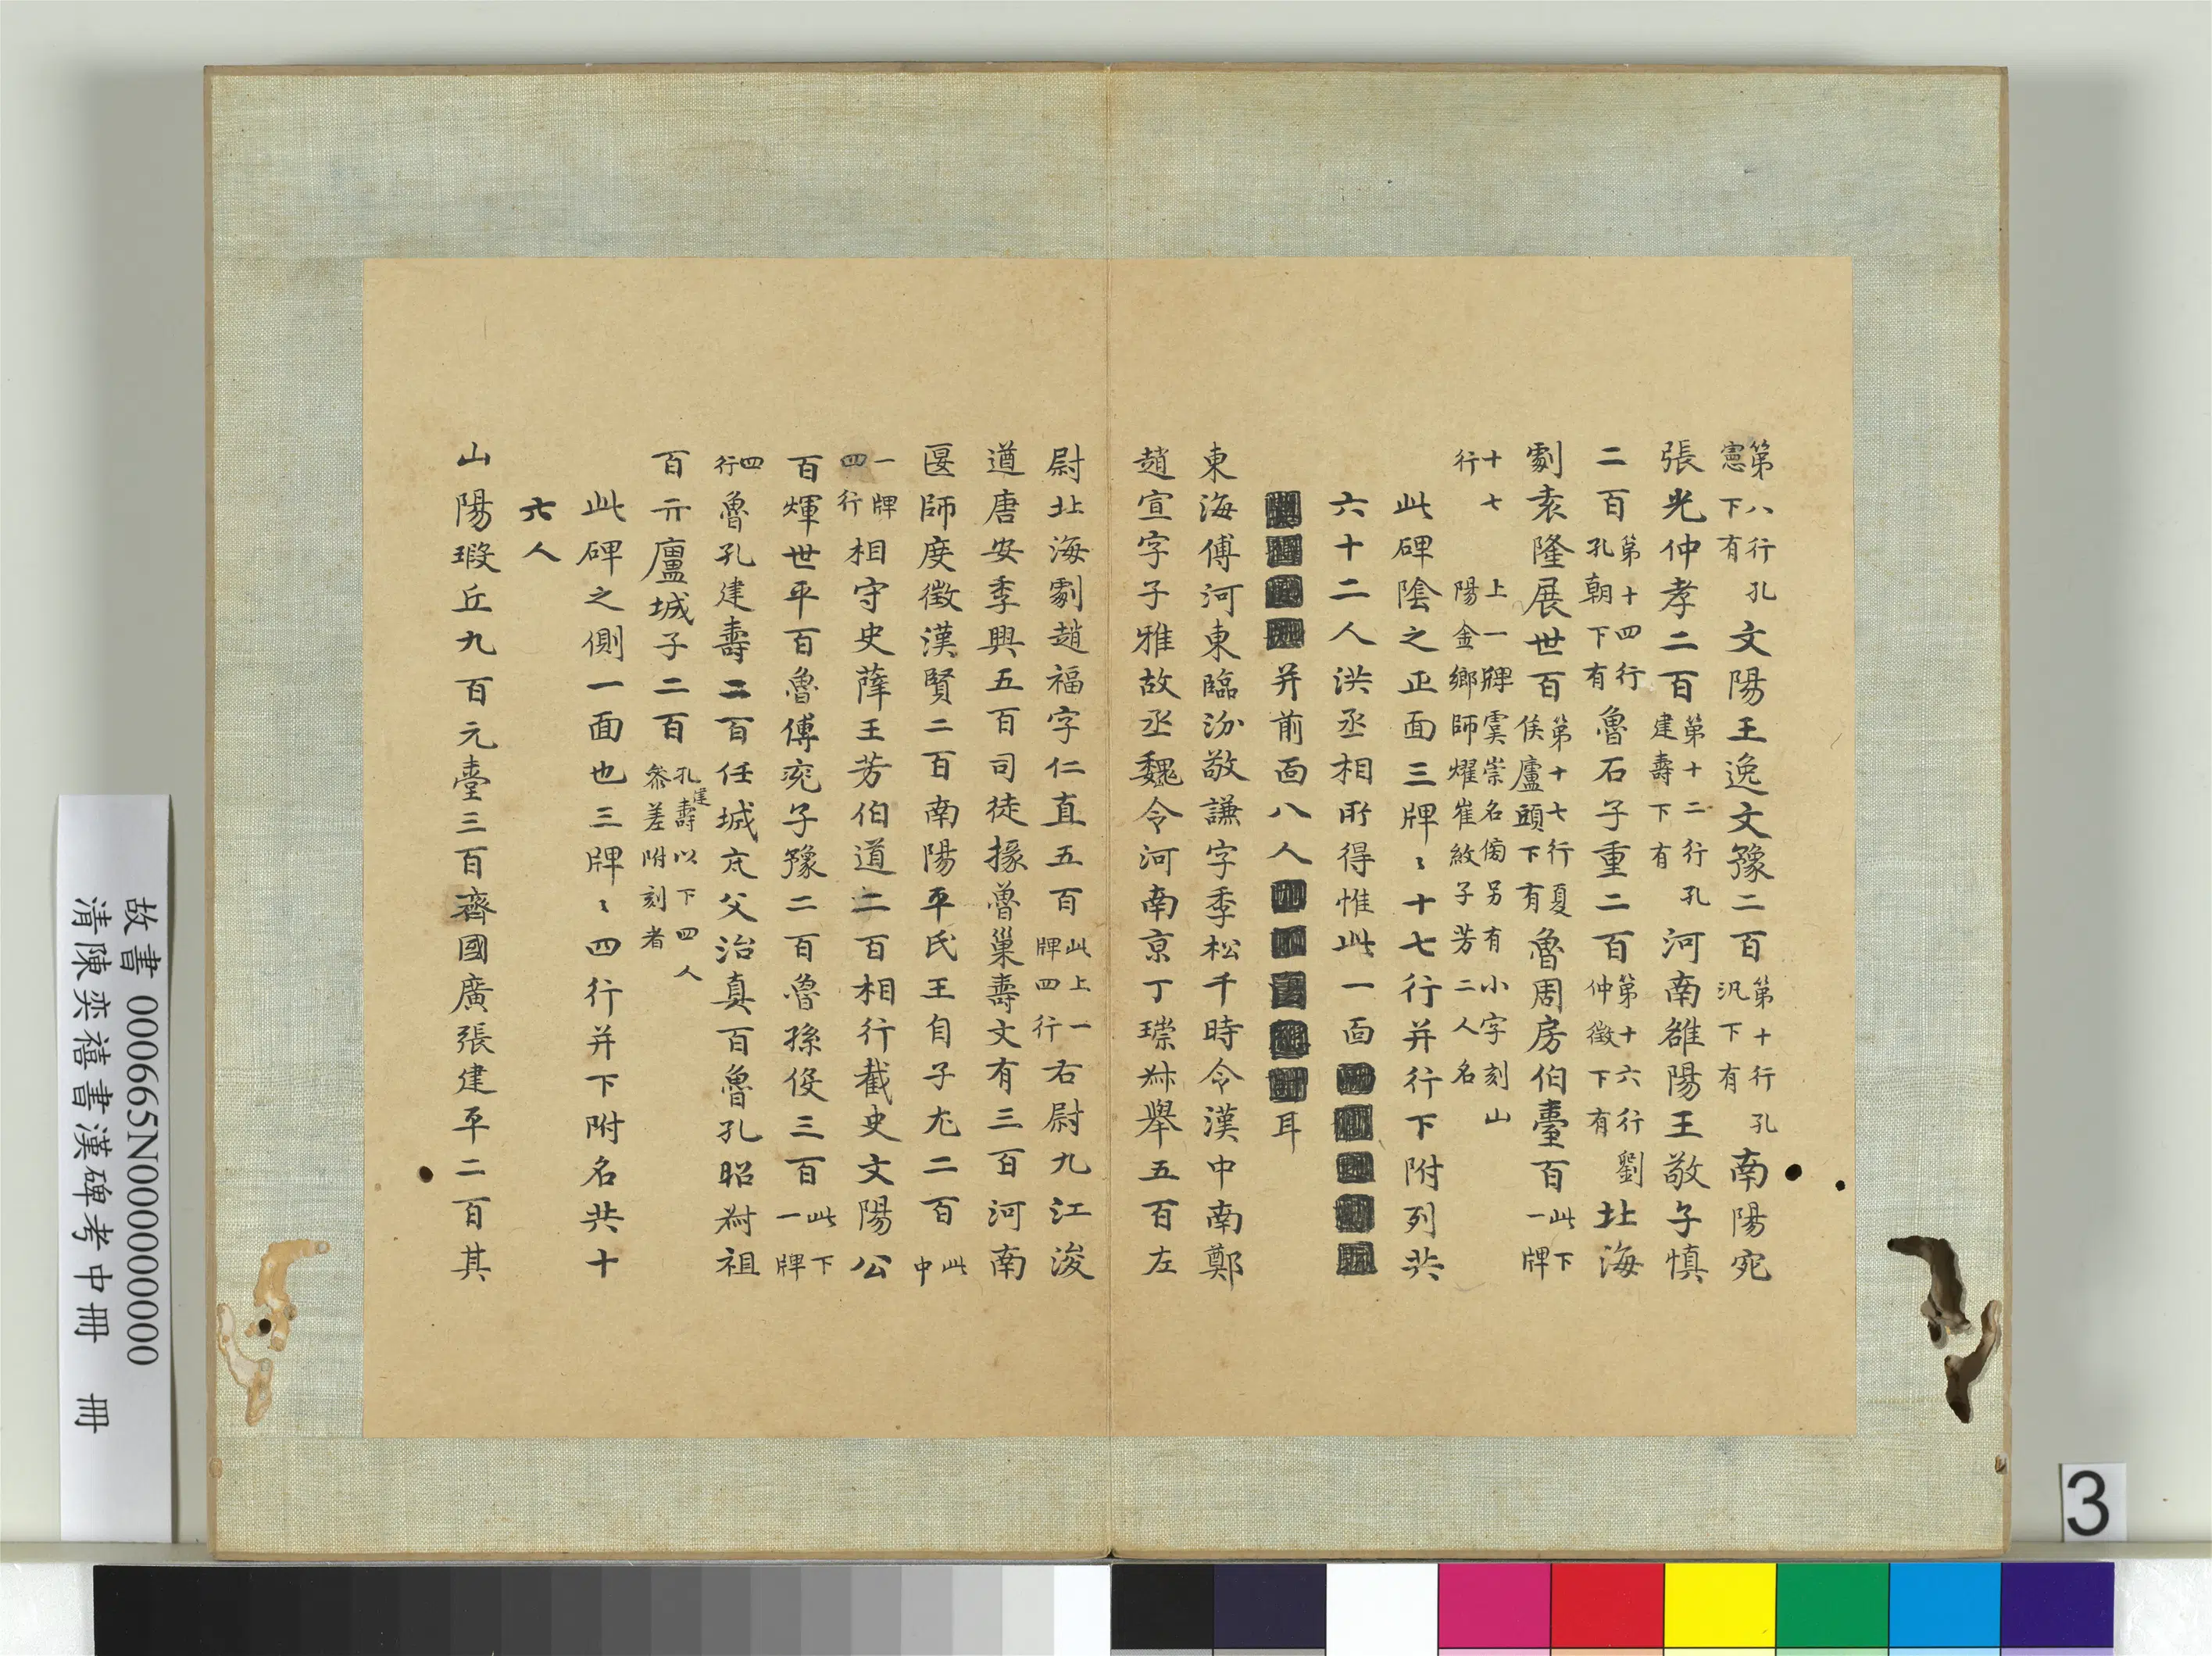 第八行孔
憲下有
文陽王逸文豫二百
第十行孔
汎下有
南陽宛
張光仲孝二百
第十二行孔
建壽下有
河南雒陽王敬子慎
二百
第十四行
孔朝下有
魯石子重二百
第十六行劉
仲徵下有
北海
劇袁隆展世百
第十七行夏
侯廬頭下有
魯周房伯臺百
此下
一牌
十七
行
上一牌虞崇名傍另有小字刻山
陽金鄉師燿崔敘子芳二人名
此碑陰之正面三牌〻十七行并行下附列共
六十二人洪丞相所得惟此一面
并前面八人
耳
東海傅河東臨汾敬謙字季松千時令漢中南鄭
趙宣字子雅故丞魏令河南京丁琮叔舉五百左
尉北海劇趙福字仁直五百
此上一
牌四行
右尉九江浚
遒唐安季興五百司徒掾魯巢壽文有三百河南
匽師度徵漢賢二百南陽平氏王自子尤二百
此
中
一牌
四行
相守史薛王芳伯道二百相行截史文陽公
百煇世平百魯傅兗子豫二百魯孫俊三百
此下
一牌
四
行
魯孔建壽二百任城亢父治真百魯孔昭叔祖
百亓廬城子二百
孔建壽以下四人
叅差附刻者
此碑之側一面也三牌〻四行并下附名共十
六人
山陽瑕丘九百元臺三百齊國廣張建平二百其
故書 000665N000000000
清陳奕禧書漢碑考中冊 冊
3